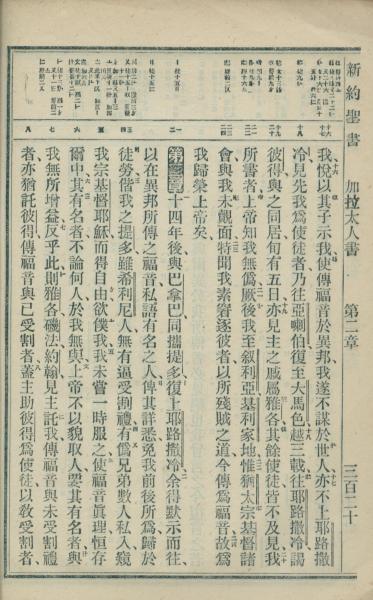 新約聖書 加拉太人書 第二章 三百二十
我悅以其子示我使傳福音於異邦我遂不謀於世人亦不上耶路撒
冷見先我爲使徒者乃往亞喇伯復至大馬色越三載往耶路撒冷謁
彼得與之同居旬有五日亦見主之戚屬雅各其餘使徒皆不及見我
所書者上帝知我無僞厥後我至敘利亞基利家地惟猶太宗基督諸
會與我未覿面特聞我素窘逐彼者以所殘賊之道今傳爲福音故爲
我歸榮上帝矣
第二章 十四年後與巴拿巴同攜提多復上耶路撒冷余得默示而往
以在異邦所傳之福音私語有名之人俾其詳悉免我前後所爲歸於
徒勞偕我之提多雖希利尼人無有逼受割禮有僞兄弟數人私入窺
我宗基督耶穌而得自由欲僕我我未嘗一時服之使福音眞理恒存
爾中其有名者不論何人於我無與上帝不以貌取人要其有名者與
我無所增益反乎此則雅各磯法約翰見主託我傳福音與未受割禮
者亦猶託彼得傳福音與已受割者蓋主助彼得爲使徒以敎受割者